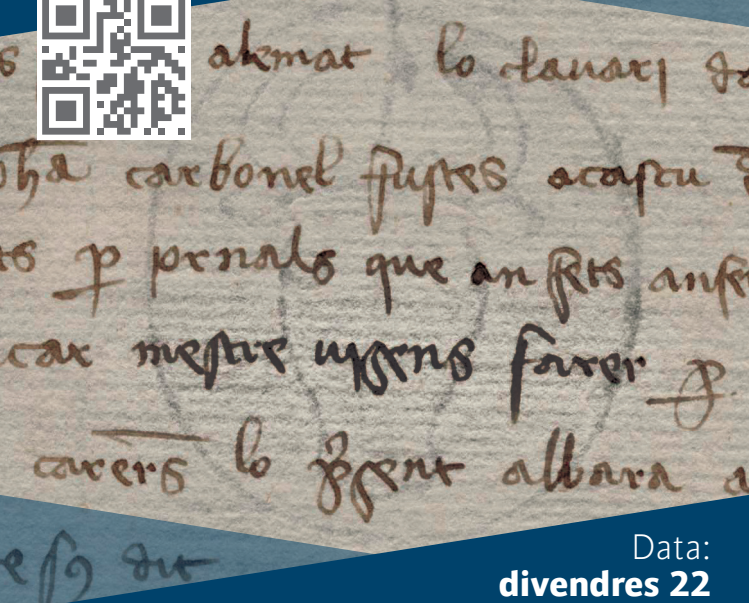 alemat lo clauari
carbonel fustes acascu
ts p jornals que an fets
car mestre uysens farer p
carers lo present albara a
dit
Data:
divendres 22